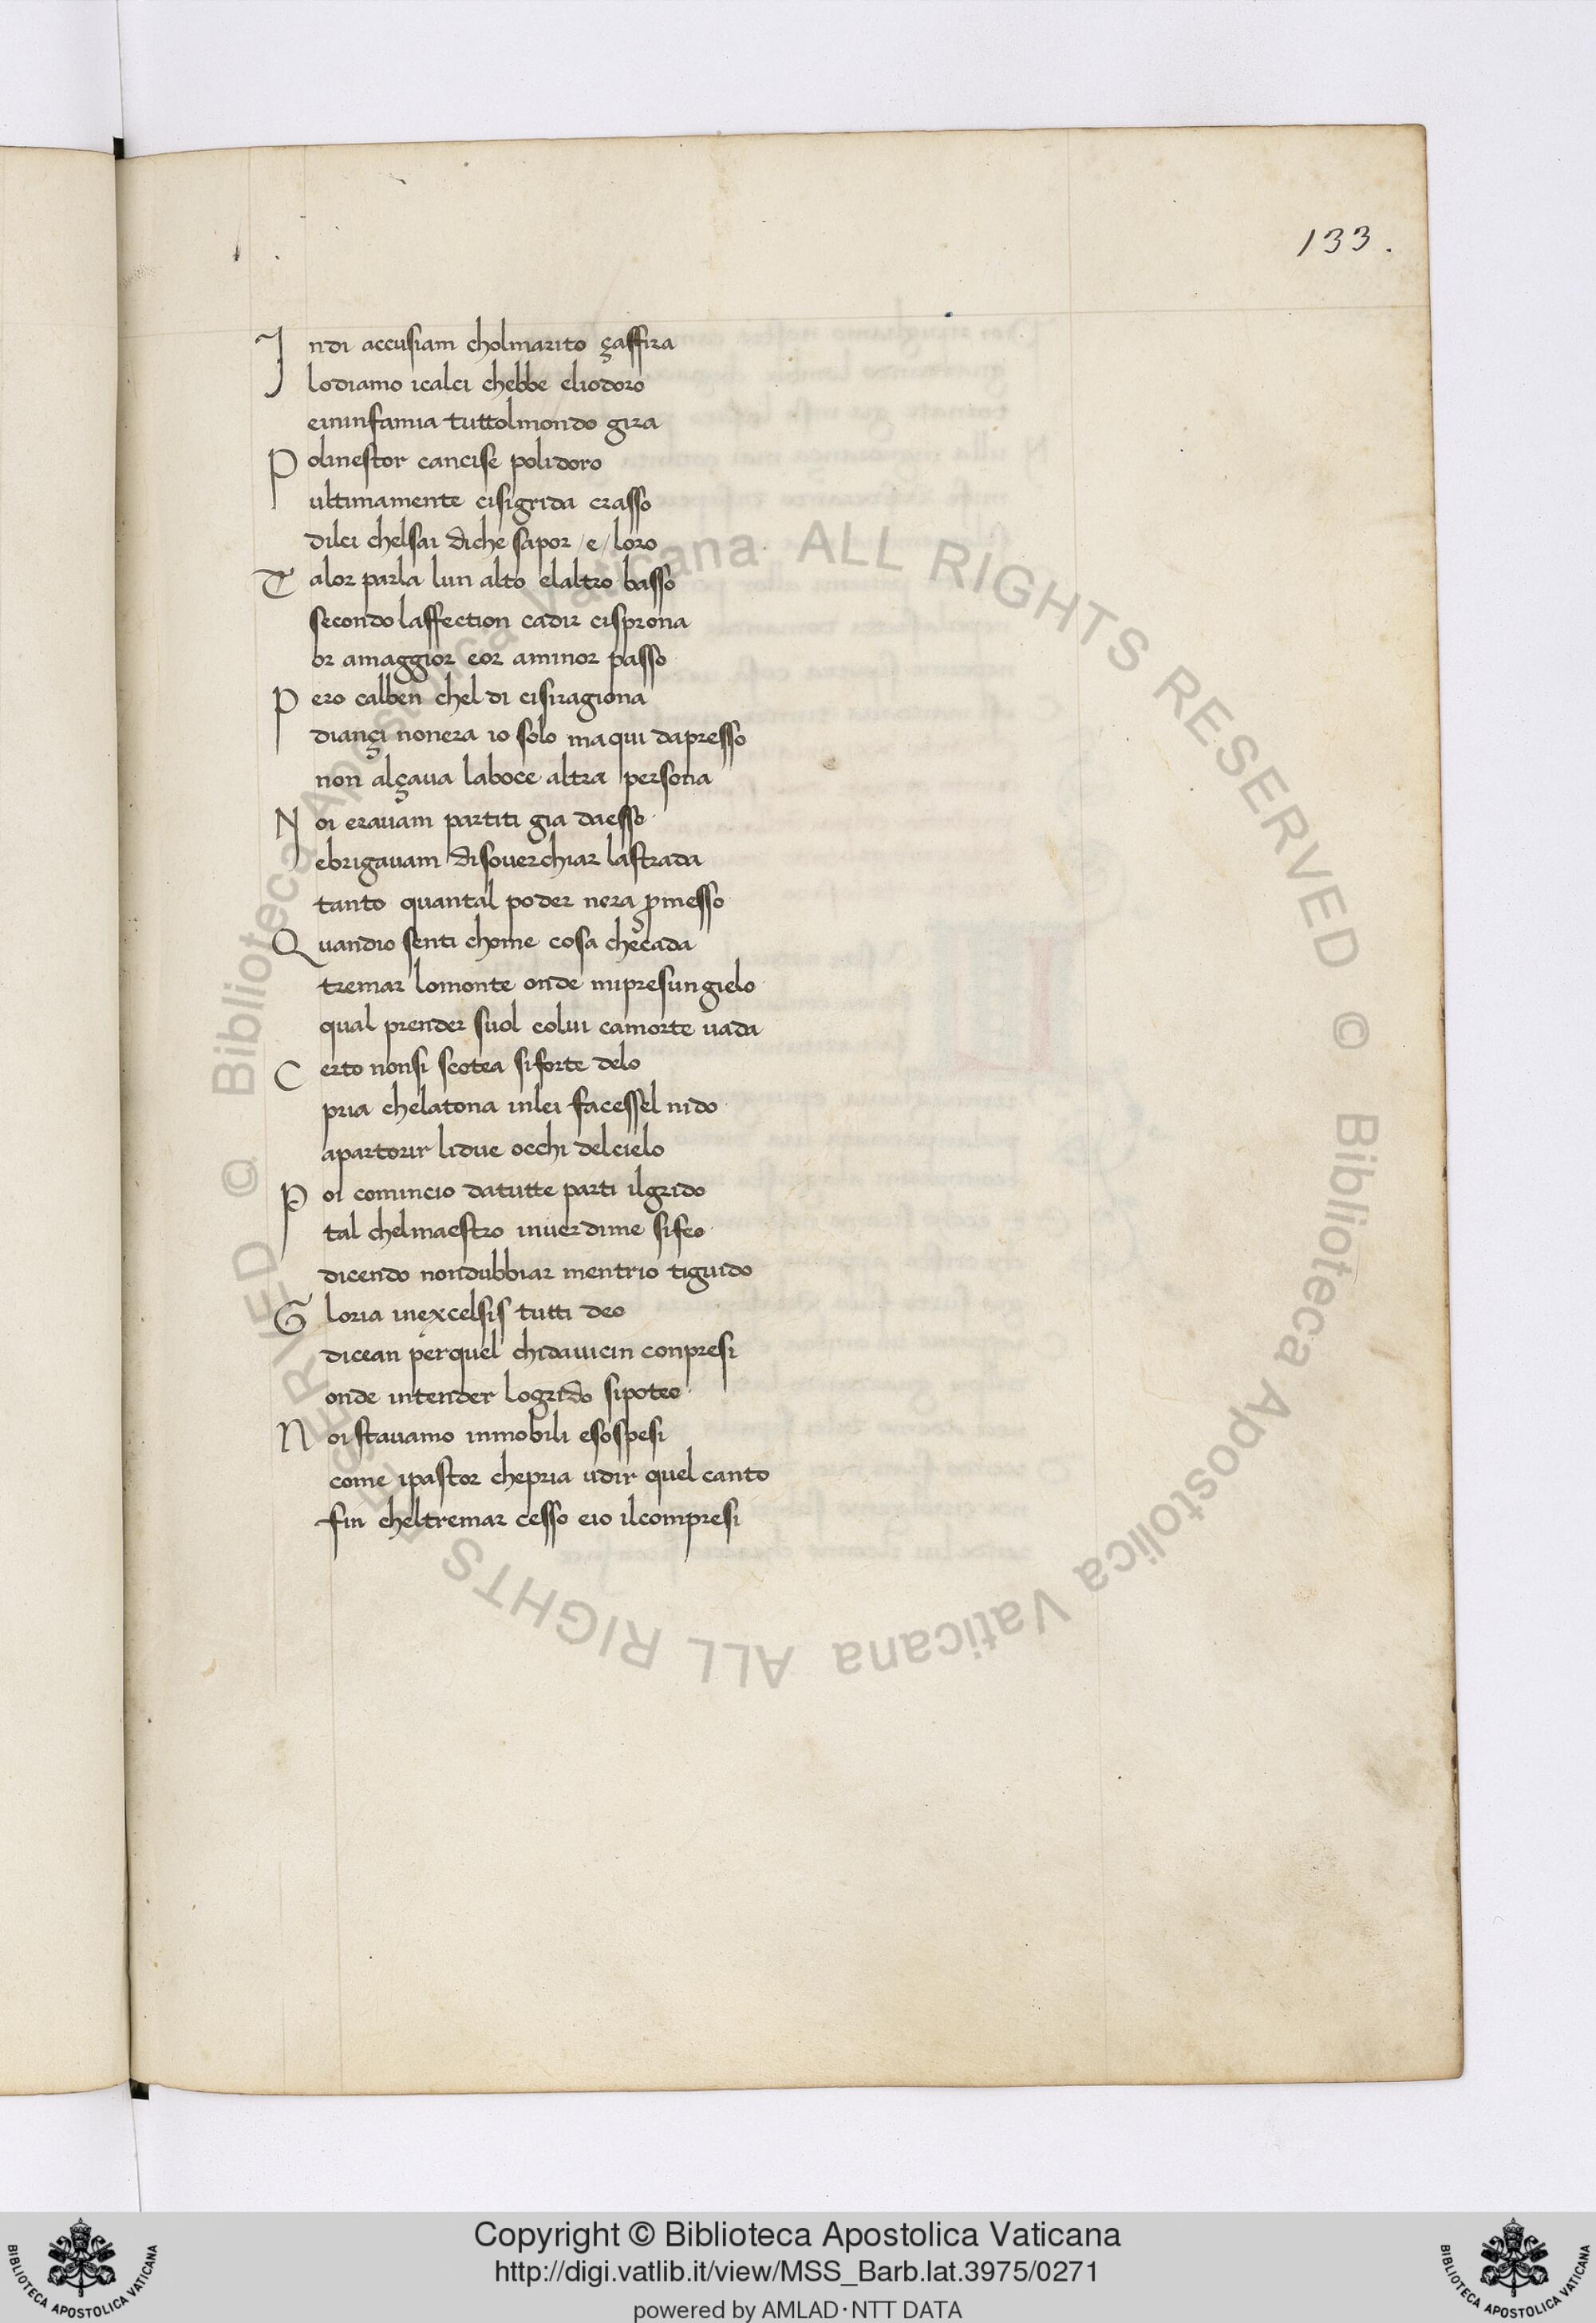 133.
Indi accusiam cholmarito çaffira
lodiamo icalci chebbe eliodoro
eininfamia tuttolmondo gira
Polinestor cancise polidoro
ultimamente cisigrida crasso
dilci chelsai diche sapor /e/ loro
Talor parla lun alto elaltro basso
secondo laffection cadir cisprona
or amaggior eor aminor passo
Pero calben chel di cisiragiona
diançi nonera io solo maqui dapresso
non alçaua laboce altra persona
Noi erauam partiti gia daesso
ebrigauam disouerchiar lastrada
tanto quantal poder nera ꝓmesso
Quandio senti chome cosa checada
tremar lomonte onde mipresungielo
qual prender suol colui camorte uada
Certo nonsi scotea siforte delo
pria chelatona inlei facessel nido
apartorir lidue occhi delcielo
Poi comincio datutte parti ilgrido
tal chelmaestro inuerdime sifeo
dicendo nondubbiar mentrio tiguido
Gloria inexcelsis tutti deo
dicean perquel chidauicin conpresi
onde intender logrido sipoteo
Noi stauamo inmobili esospesi
come ipastor chepria udir quel canto
fin cheltremar cesso eio ilcompresi
© Biblioteca Apostolica Vaticana ALL RIGHTS RESERVED
© Biblioteca Apostolica Vaticana ALL RIGHTS RESERVED
Copyright © Biblioteca Apostolica Vaticana
http://digi.vatlib.it/view/MSS_Barb.lat.3975/0271
powered by AMLAD·NTT DATA
BIBLIOTECA APOSTOLICA VATICANA
BIBLIOTECA APOSTOLICA VATICANA